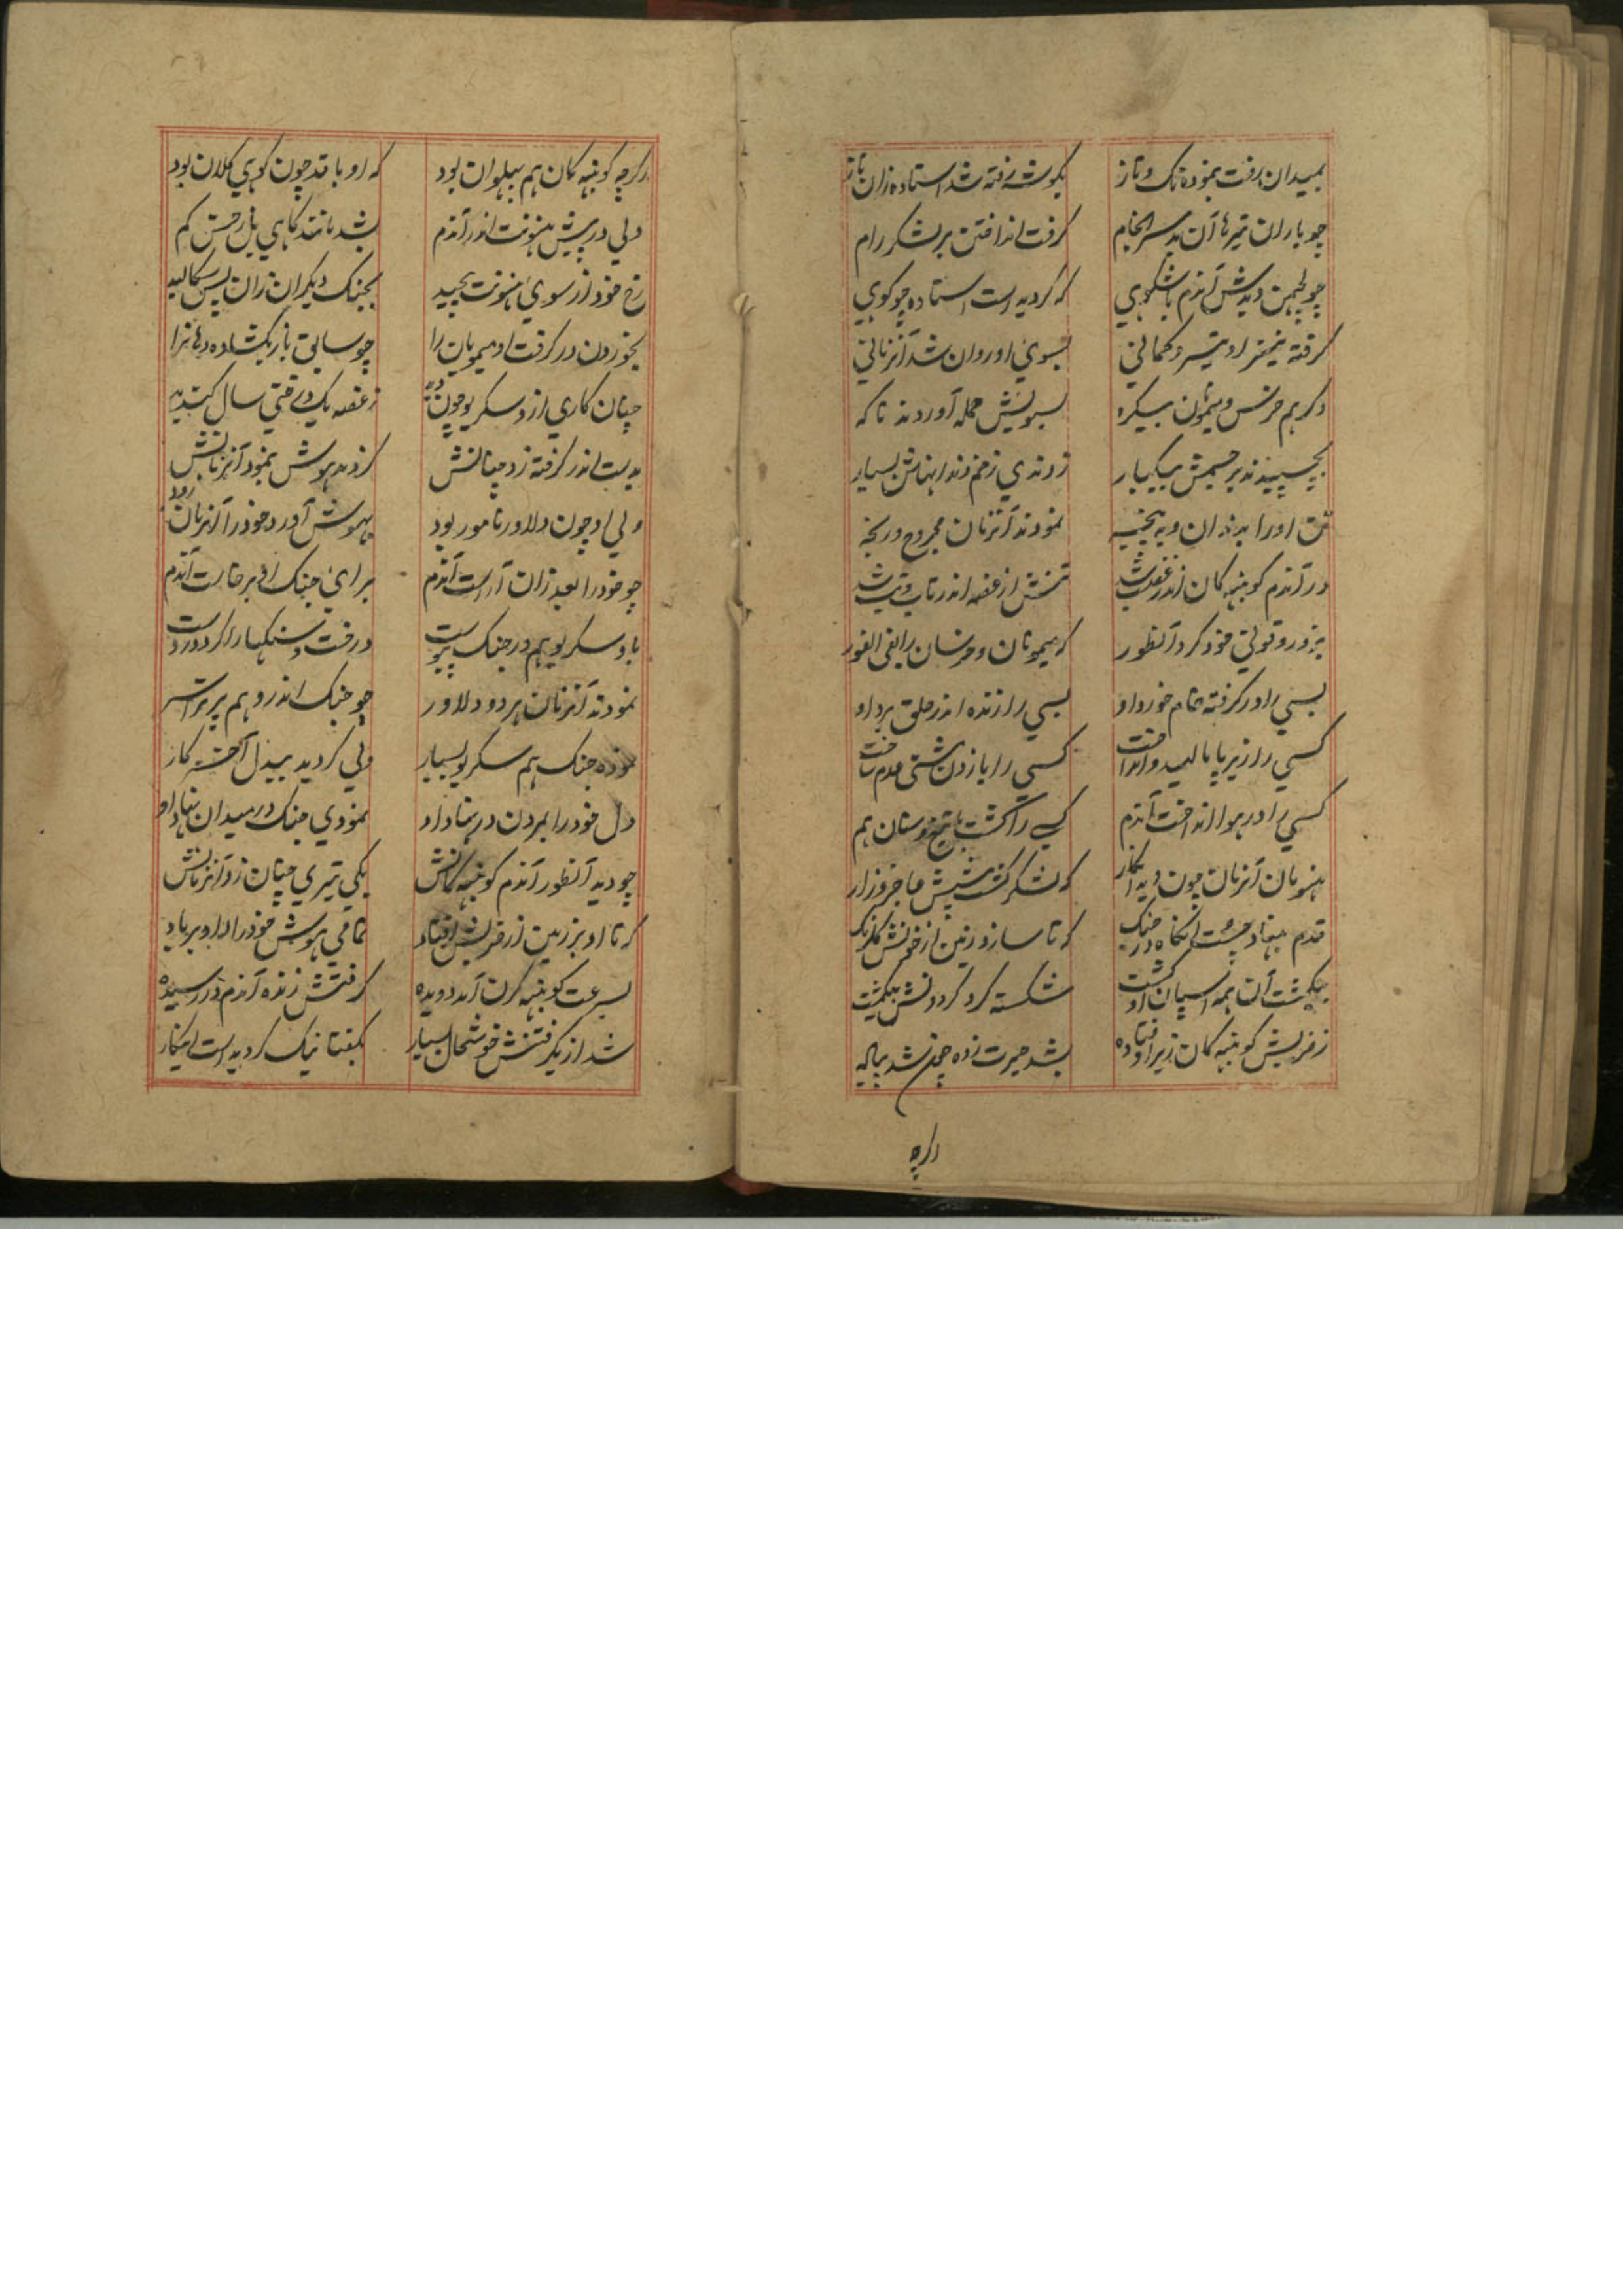 بمیدان رفت بنموده تک و تاز
بگوشه رفته شد استاده زان باز
چو باران تیرها آن بد سرانجام
گرفت انداختن بر لشکر رام
چو لچمن دیدش آندم با شکوهی
که گردیده است استاده چو کوهی
گرفته نیز او تیر و کمانی
بسوی او روان شد آنزمانی
دگر هم خرس و میمون
بسویش حمله آوردند تا که
بچسپیدند بر جسمش بیکبار
زدندی زخم دندانهاش بسیار
تن او را بدندان و به پنجه
نمودند آنزمان مجروح و رنجه
در آندم کونبهه کان اندر غضب شد
تنش از غصه اندر تاب و تب شد
بزور و قوتی خود کرد آنطور
که میمونان و خرسان را بفی الفور
بسی را در گرفته خام خورد او
بسی را زنده اندر حلق برد او
کسی را زیر پا مالید و انداخت
کسی را با زدن مشتی عدم ساخت
کسی را در هوا انداخت آندم
کسی را کشت با تیغ و سنان هم
هنومان آنزمان چون دید اینکار
که لشکر گشت پیشش عاجز و زار
قدم بنهاد چست آنگاه در جنگ
که تا سازد زمین از خونش گلرنگ
بکشت آن همه اسپان او کشت
شکسته گرد گردونش بیکمشت
ز ضربش کونبهه کان زیر اوفتاده
بشد حیرت زده چون شد پیاده
اگرچه
اگرچه کونبهه کان هم پهلوان بود
که او با قد چون کوهی کلان بود
ولی در پیش هنونت اندر آندم
بشد مانند کاهی بل زخس کم
رخ خود از سوی هنونت پیچید
بجنگ دیگران زان پس سگالید
بخوردن در گرفت او میمونان را
چو سابق باز بگشاده دهانرا
چنان کاری ازو سکریو چون دید
ز غصه یک دو قتی سال کندید
بدست اندر گرفته زد چنانش
که بیهوش بنمود آنزمانش
ولی او چون دلاور نامور بود
بهوش آورد خود را آنزمان زود
چو خود را بعد زان آراست آندم
برای جنگ او برخاست آندم
باو سکریو هم در جنگ پیوست
درخت و سنگها را کرد در دست
نمودند آنزمان هر دو دلاور
چو جنگ اندر و هم پر برابر
نموده جنگ هم سکریو بسیار
ولی گردید بیدل آخر کار
دل خود را بمردن در نهاد او
نمودی جنگ در میدان ستاد او
چو دید آنطور آندم کونبهه کانش
یکی تیری چنان زد آنزمانش
که تا او بر زمین از ضربش افتاد
تمامی هوش خود را داد بر باد
بسرعت کونبهه کرن آمد دویده
گرفتش زنده آندم در رسیده
شد از بگرفتنش خوشحال بسیار
بگفتا نیک گردیده است اینکار